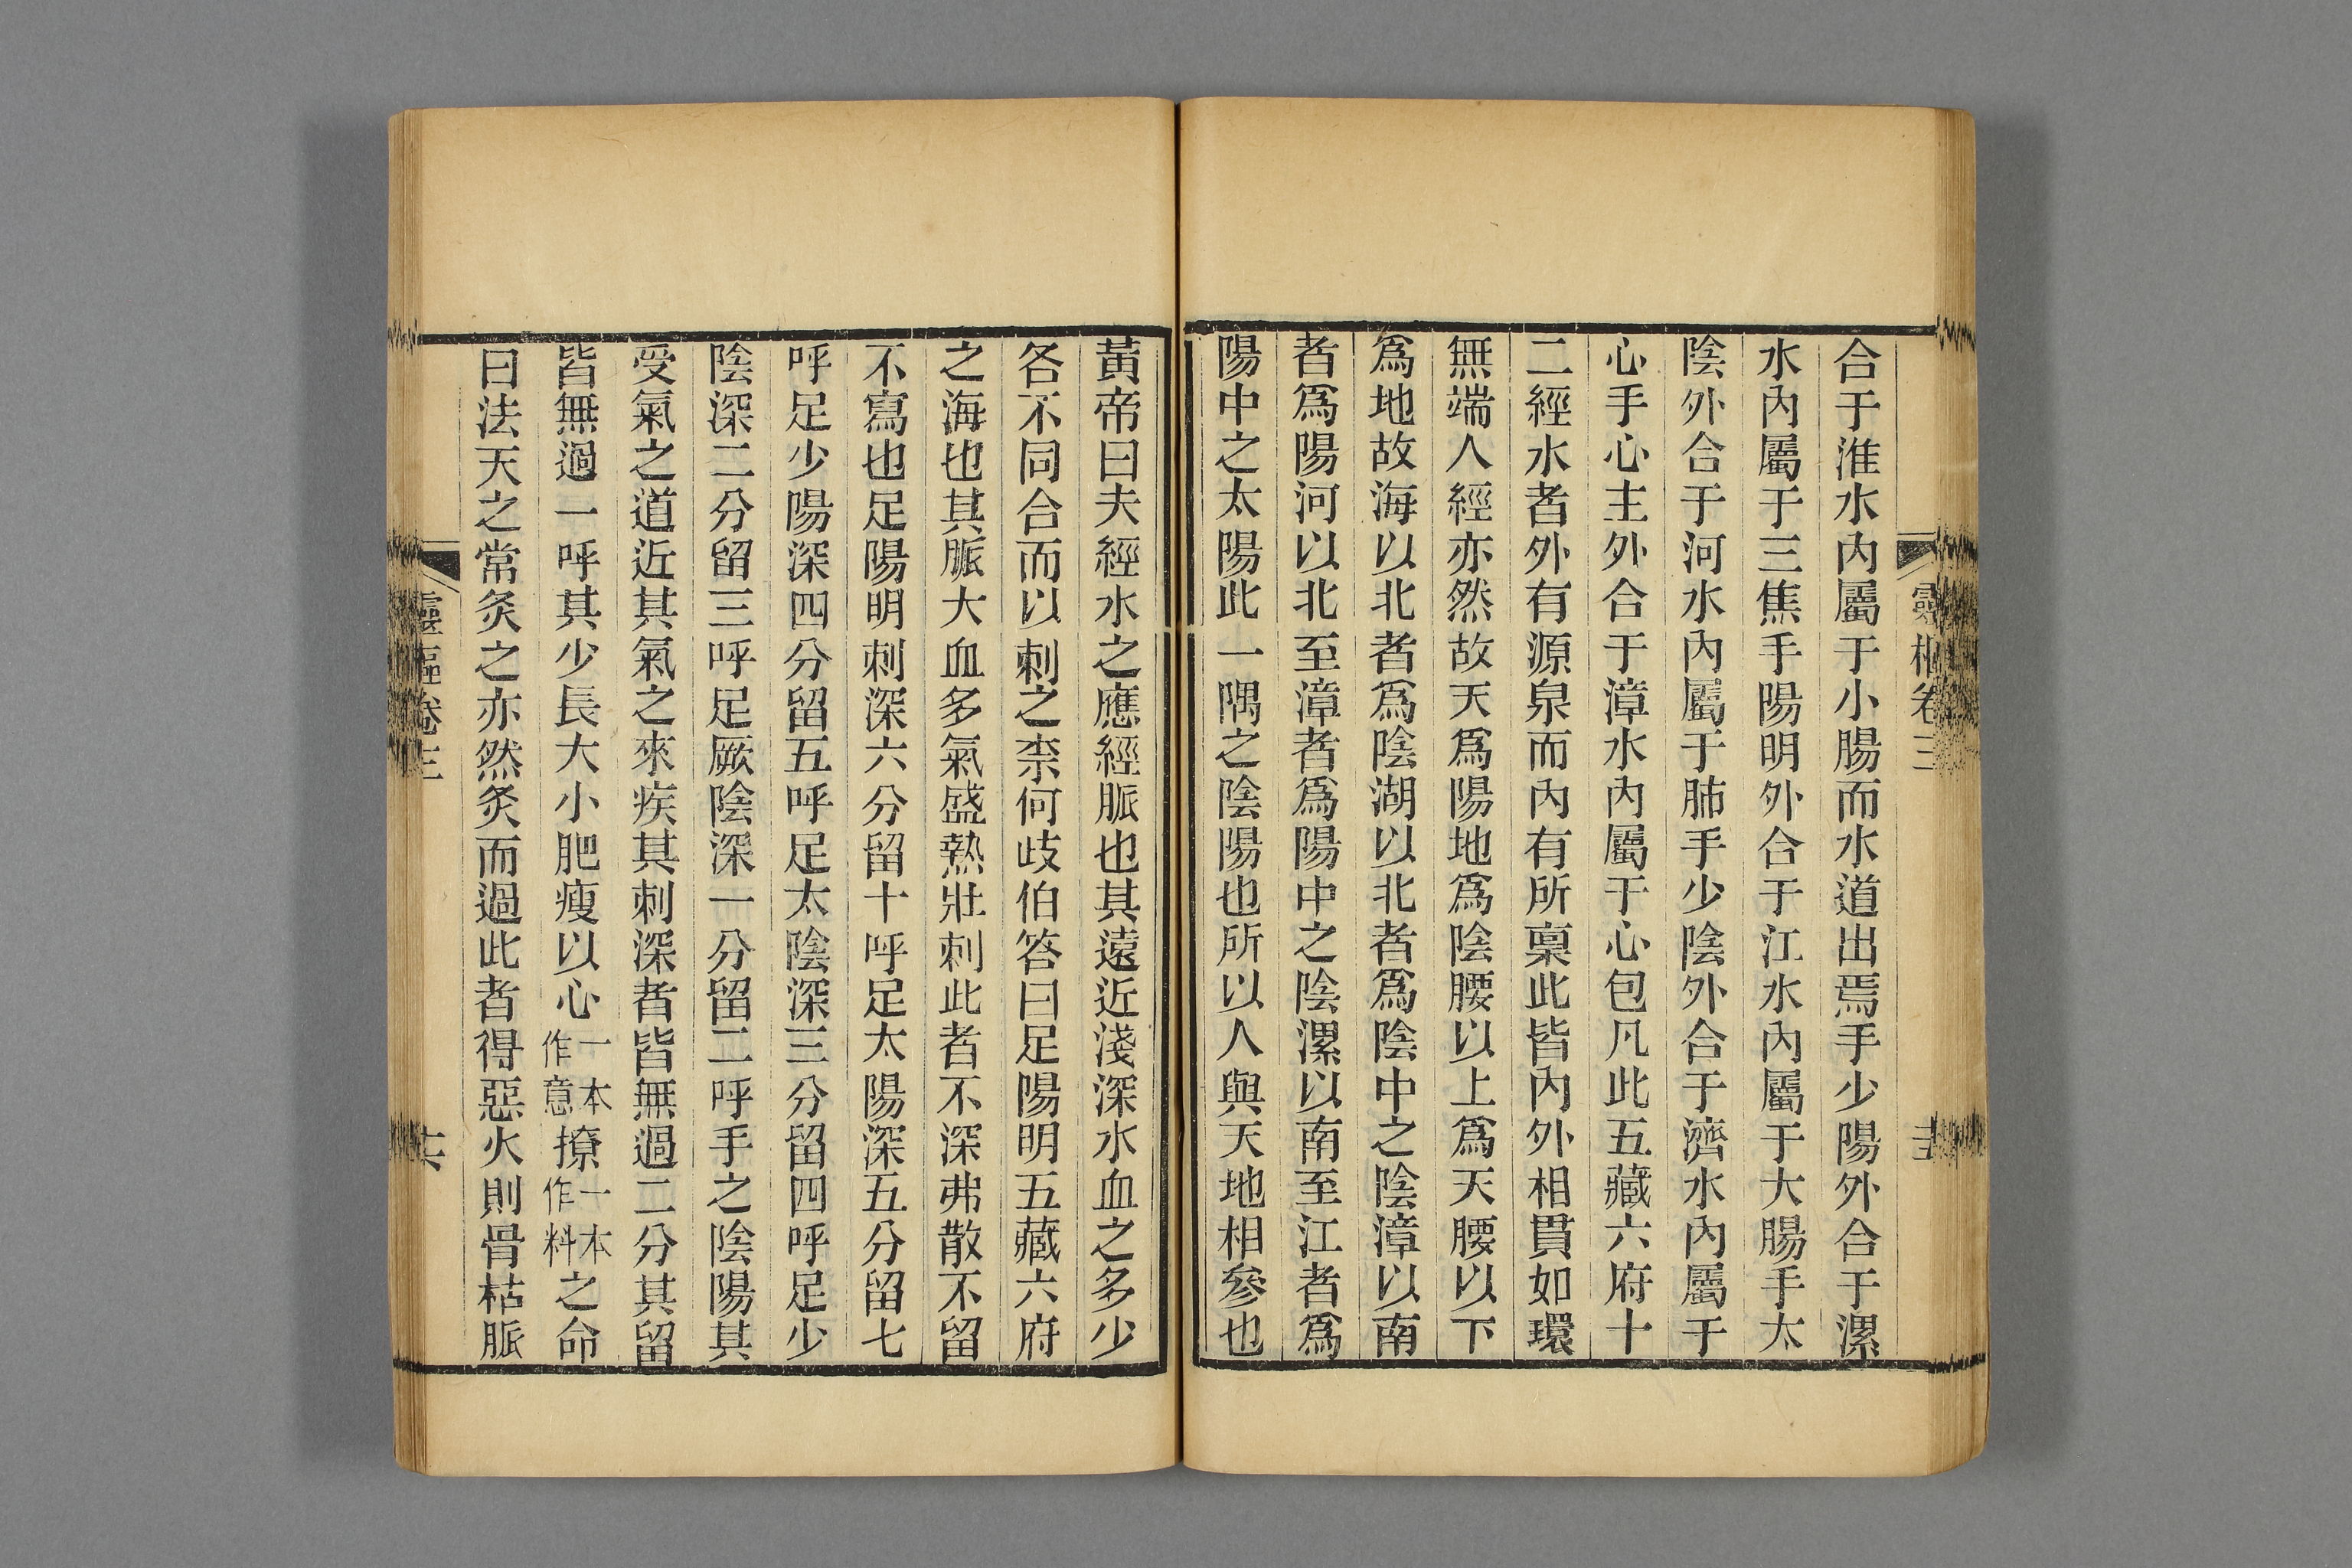 靈樞卷三
合于淮水內屬于小腸而水道出焉手少陽外合于漯
水內屬于三焦手陽明外合于江水內屬于大腸手太
陰外合于河水內屬于肺手少陰外合于濟水內屬于
心手心主外合于漳水內屬于心包凡此五藏六府十
二經水者外有源泉而內有所稟此皆內外相貫如環
無端人經亦然故天爲陽地爲陰腰以上爲天腰以下
爲地故海以北者爲陰湖以北者爲陰中之陰漳以南
者爲陽河以北至漳者爲陽中之陰漯以南至江者爲
陽中之太陽此一隅之陰陽也所以人與天地相參也
黃帝曰夫經水之應經脈也其遠近淺深水血之多少
各不同合而以刺之柰何歧伯答曰足陽明五藏六府
之海也其脈大血多氣盛熱壯刺此者不深弗散不留
不寫也足陽明刺深六分留十呼足太陽深五分留七
呼足少陽深四分留五呼足太陰深三分留四呼足少
陰深二分留三呼足厥陰深一分留二呼手之陰陽其
受氣之道近其氣之來疾其刺深者皆無過二分其留
皆無過一呼其少長大小肥瘦以心一本作意撩一本作料之命
曰法天之常灸之亦然灸而過此者得惡火則骨枯脈
靈樞卷三